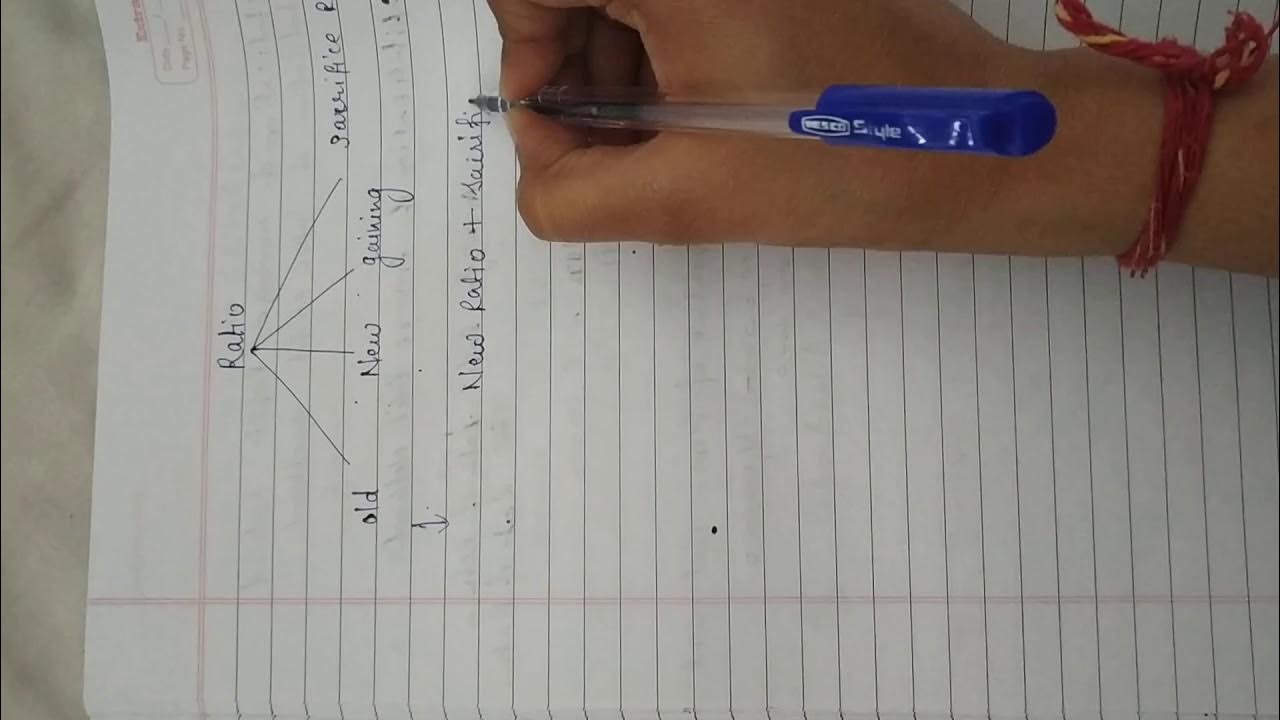 Extra
Date
Page No.
Ratio
old New gaining sacrifice R
New Ratio + Sacrifi
Style